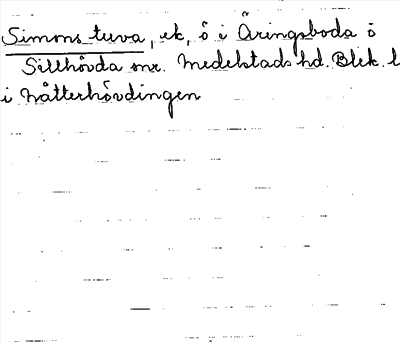 Simons tuva, ek, ö i Äringsboda ö
Sillhövda snr. Medelstads hd. Blek. l
i Nätterhövdingen